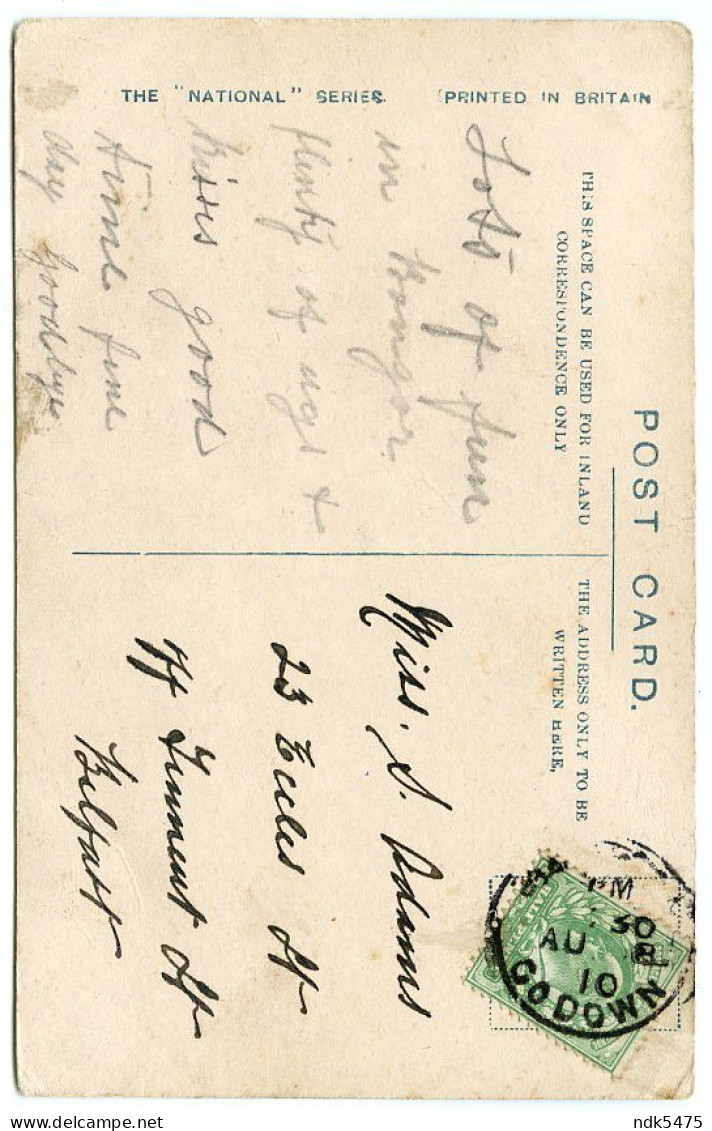 THE "NATIONAL" SERIES.
PRINTED IN BRITAIN
POST CARD.
THIS SPACE CAN BE USED FOR INLAND
CORRESPONDENCE ONLY
THE ADDRESS ONLY TO BE
WRITTEN HERE.
Lots of fun
in Bangor
plenty of ugs &
kisses good
time fine
day goodbye
Miss. S. Adams
23 Eccles St
Off Tennent St
Belfast
PM
30
AU 8
10
CO DOWN
ndk5475